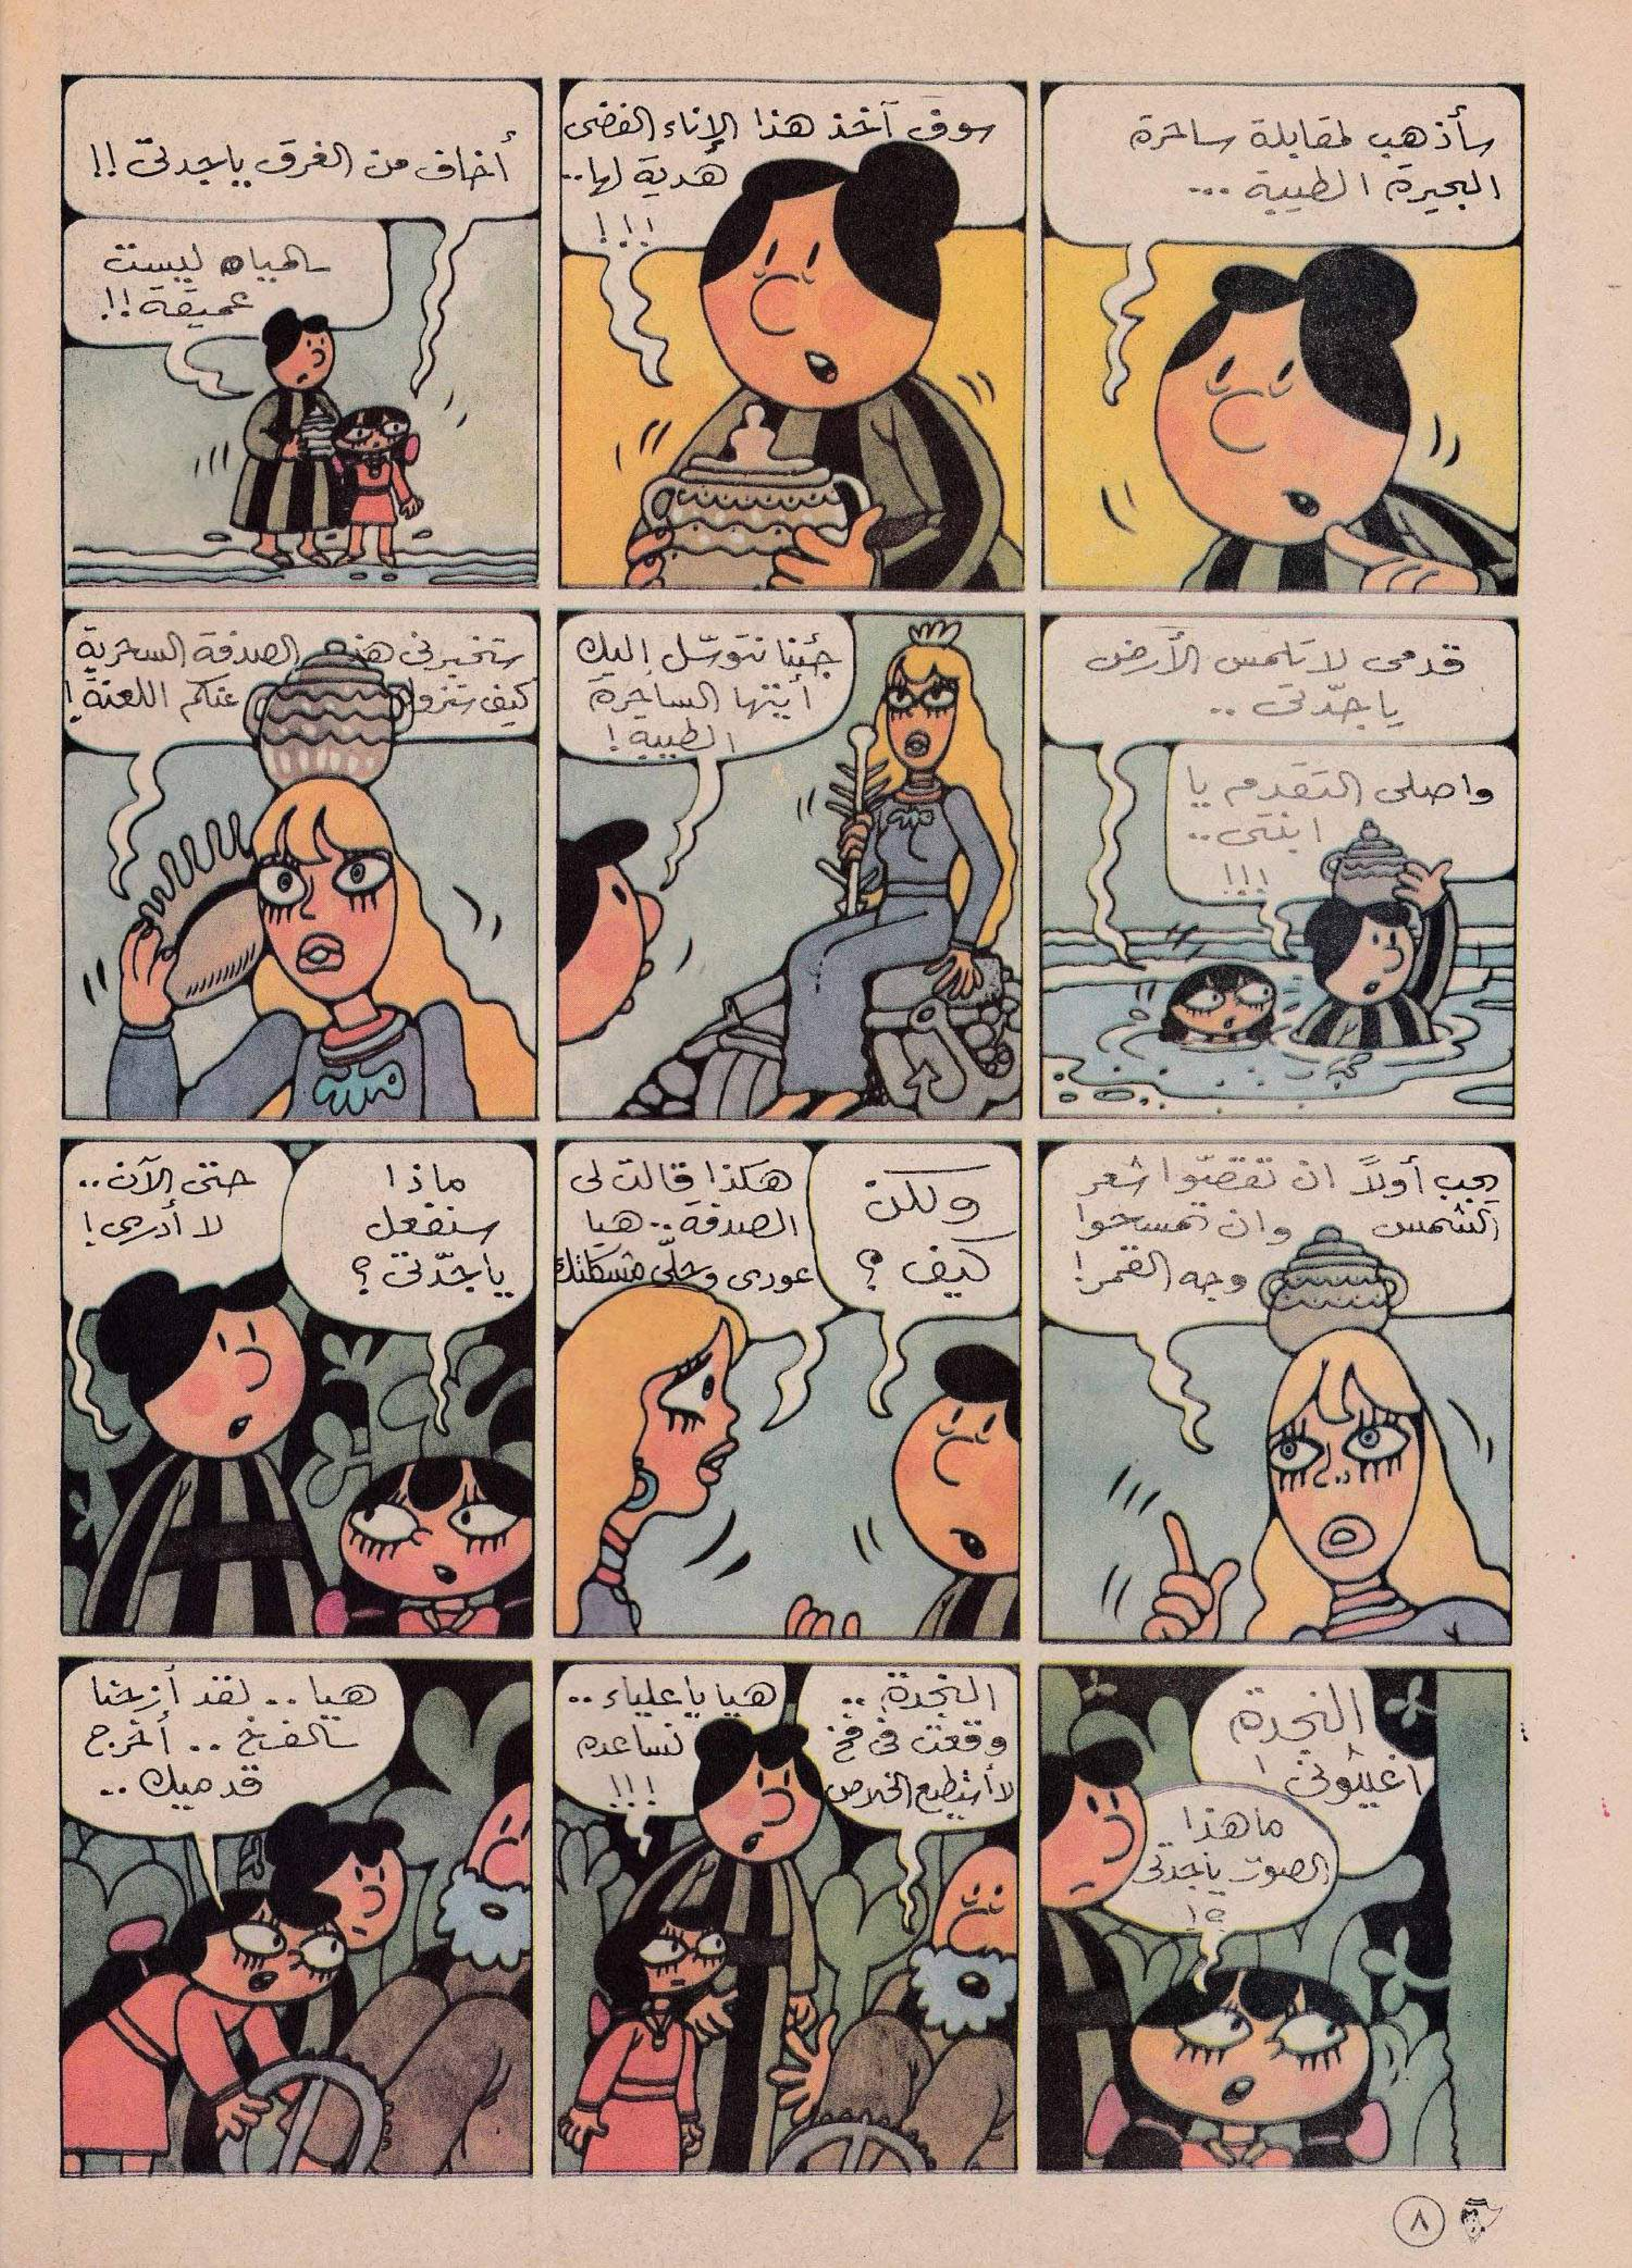 سأذهب لمقابلة ساحرة
البحيرة الطيبة ...
سوف آخذ هذا الإناء الفضى
هدية لها..
!!!
أخاف من الغرق ياجدتى !!
المياه ليست
عميقة !!
قدمى لا تلمس الأرض
ياجدّتى ..
واصلى التقدم يا
ابنتى ..
!!!
جئنا نتوسّل إليك
أيتها الساحرة
الطيبة !
ستخبرنى هذه الصدفة السحرية
كيف ستزول عنكم اللعنة !
يجب أولاً ان تقصّوا شعر
الشمس وان تمسحوا
وجه القمر !
ولكن
كيف ؟
هكذا قالت لى
الصدفة .. هيا
عودى وحلّى مشكلتك
ماذا
سنفعل
ياجدّتى ؟
حتى الآن ..
لا أدرى !
النجدة
أغيثونى !
ماهذا
الصوت ياجدتى
؟!
النجدة ..
وقعت فى فخ
لا أستطيع الخلاص
هيا يا علياء ..
نساعده
!!!
هيا .. لقد أزحنا
الفخ .. أخرج
قدميك ..
٨